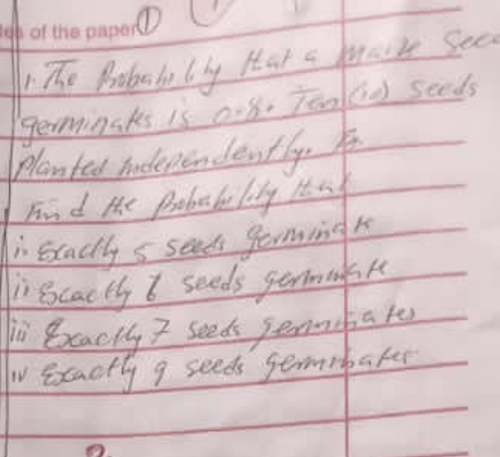 les of the paper ①
1. The Probability that a maize seed
germinates is 0.8. Ten (10) seeds
Planted independently.
Find the Probability that
i. Exactly 5 seeds germinate
ii Exactly 6 seeds germinate
iii Exactly 7 seeds germinates
iv Exactly 9 seeds germinates